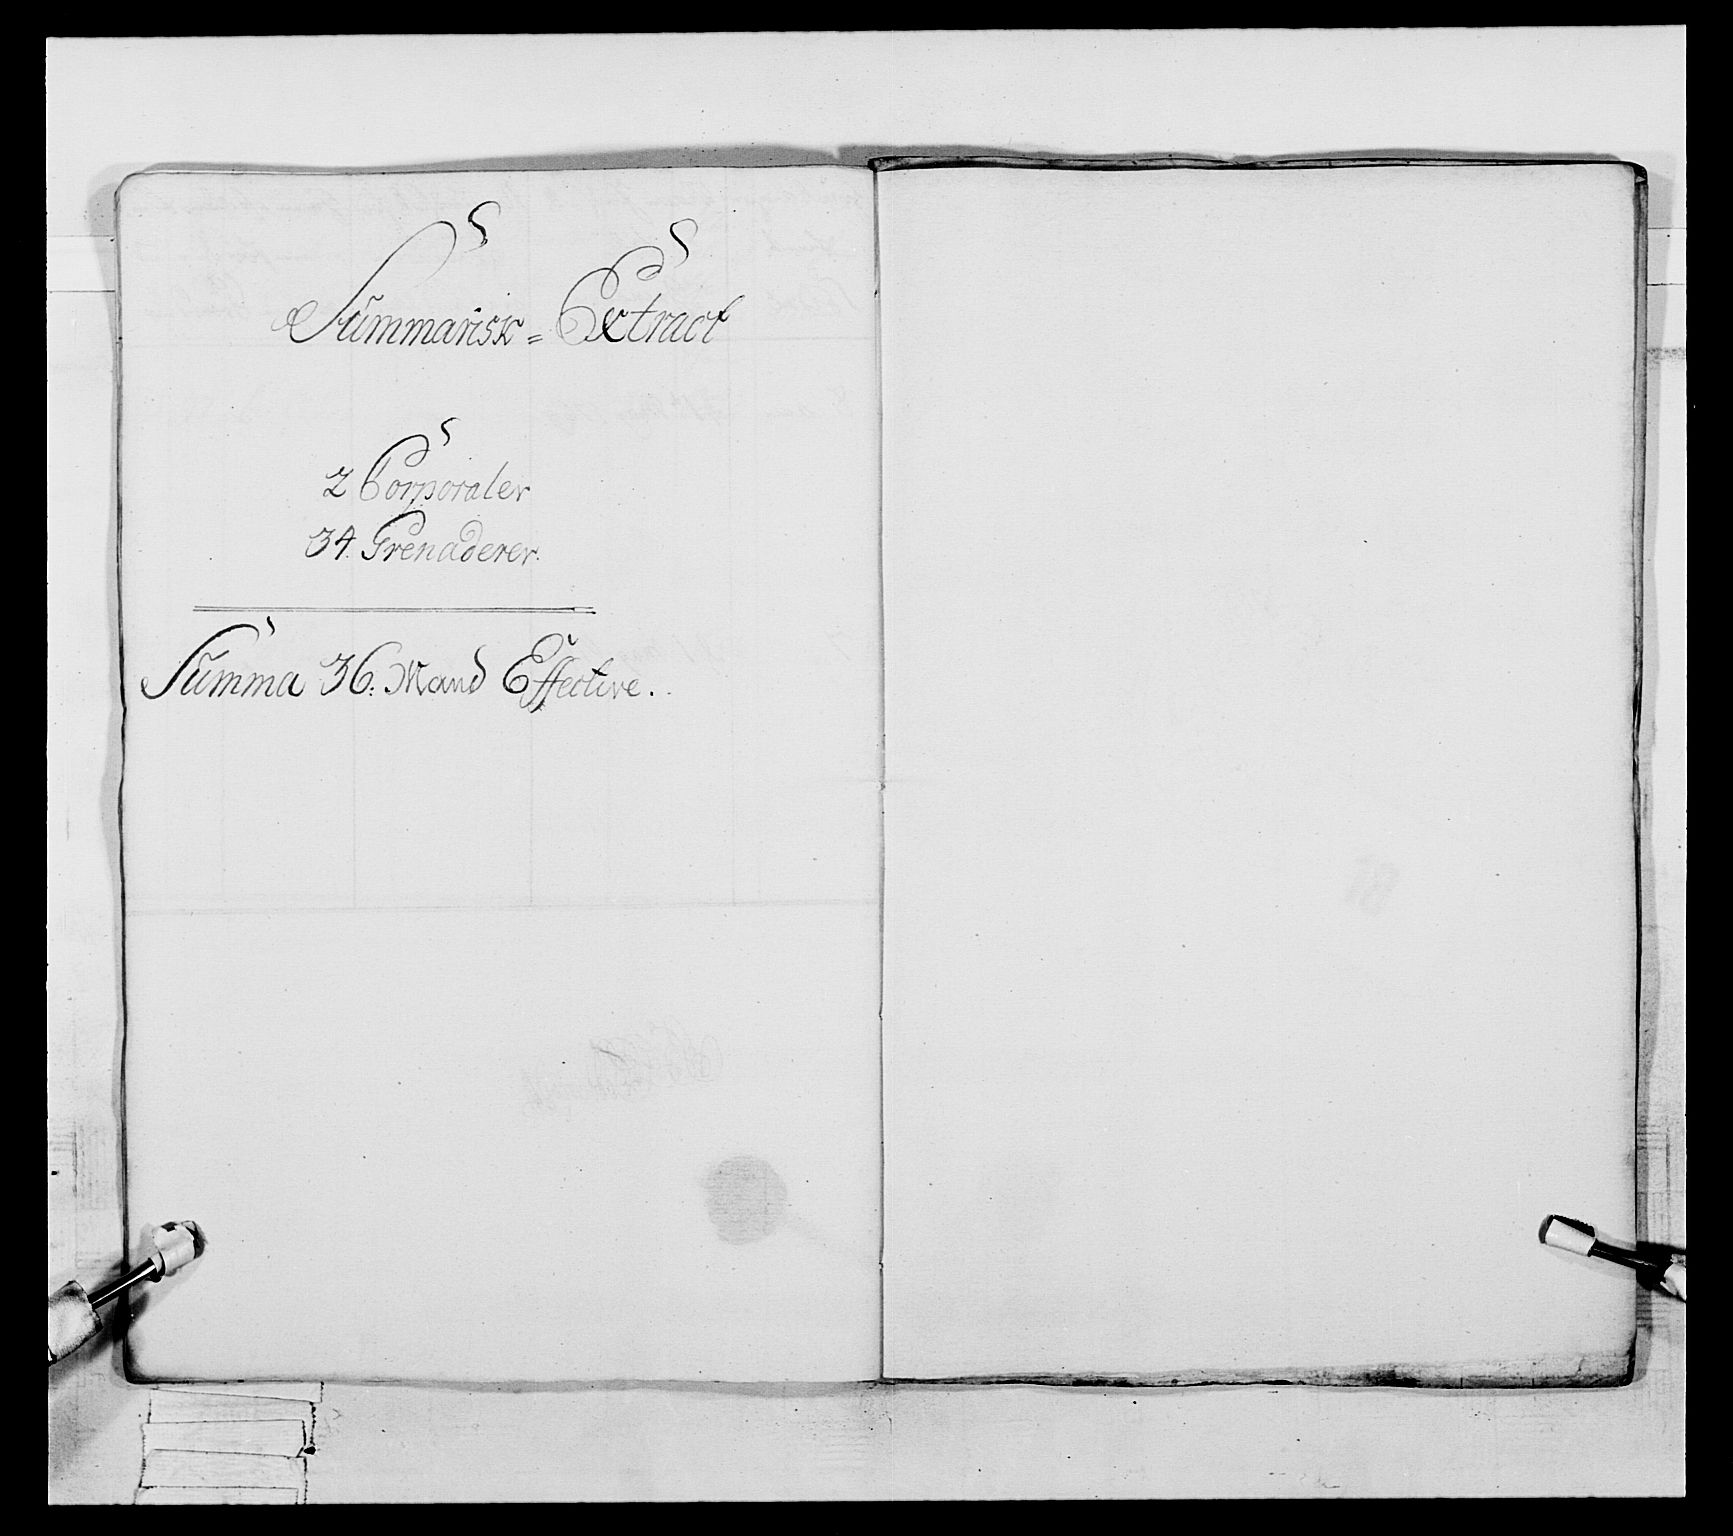 Summarisk= Extract
2 Corporaler
34. Grenaderer.
Summa 36: Mand Effective.